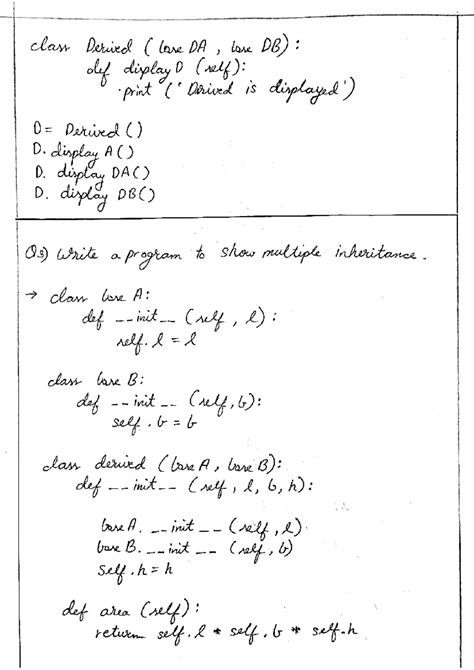 class Derived (base DA, base DB):
def displayD (self):
print ('Derived is displayed')
D = Derived ()
D. display A ()
D. display DA()
D. display DB()
Q3) Write a program to show multiple inheritance.
→ class base A:
def __init__ (self, l):
self. l = l
class base B:
def __init__ (self, b):
self. b = b
class derived (base A, base B):
def __init__ (self, l, b, h):
base A. __init__ (self, l)
base B. __init__ (self, b)
self. h = h
def area (self):
return self. l * self. b * self. h